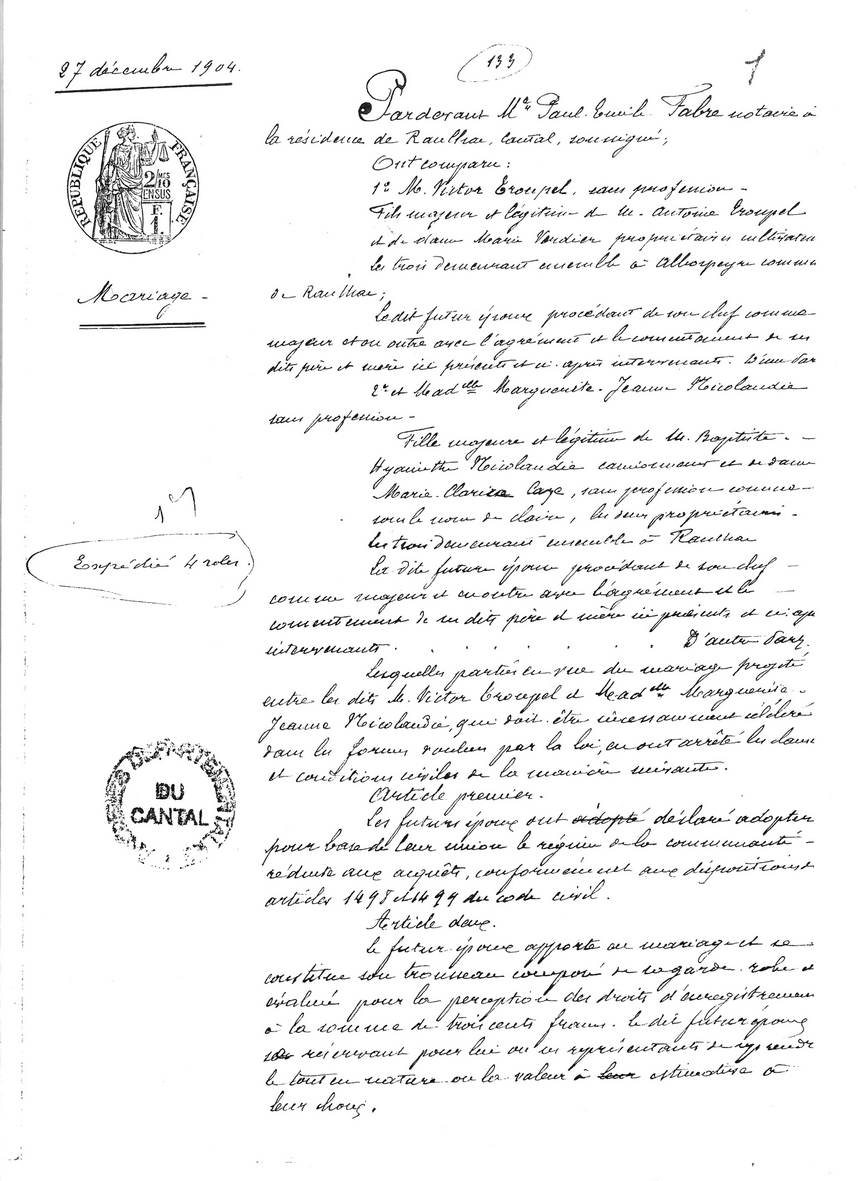 27 décembre 1904.
133
1
Pardevant Me Paul-Emile Fabre notaire à
la résidence de Raulhac, Cantal, soussigné;
Ont comparu:
1º M. Victor Troupel, sans profession -
Fils majeur et légitime de M. Antoine Troupel
et de dame Marie Verdier propriétaires cultivateurs
les trois demeurant ensemble à Albospeyre commune
de Raulhac;
RÉPUBLIQUE FRANÇAISE
2/10 MES
EN SUS
F.
1
Mariage -
Le dit futur époux procédant de son chef comme
majeur et en outre avec l'agrément et le consentement de ses
dits père et mère ici présents et ci-après intervenants. D'une Part
2º et Madelle Marguerite-Jeanne Nicolaudie
sans profession -
Fille majeure et légitime de M. Baptiste -
Hyacinthe Nicolaudie et de dame
Marie-Clarisse Caze, sans profession connue
sous le nom de Claire, les deux propriétaires -
les trois demeurant ensemble à Raulhac
La dite future épouse procédant de son chef -
comme majeure et en outre avec l'agrément et le -
consentement de ses dits père et mère ici présents et ci-après
intervenants. D'autre Part.
Expédié 4 roles.
Lesquelles parties en vue du mariage projeté
entre les dits M. Victor Troupel et Madelle Marguerite -
Jeanne Nicolaudie, qui doit être incessamment célébré
dans les formes voulues par la loi, en ont arrêté les clauses
et conditions civiles de la manière suivante.
ARCHIVES DÉPARTEMENTALES
DU
CANTAL
Article premier.
Les futurs époux ont adopté déclaré adopter
pour base de leur union le régime de la communauté -
réduite aux acquêts, conformément aux dispositions des
articles 1498 et 1499 du code civil.
Article deux.
Le futur époux apporte au mariage et se
constitue son trousseau composé de sa garde-robe et
évalué pour la perception des droits d'enregistrement
à la somme de trois cents francs. Le dit futur époux
se réservant pour lui ou ses représentants de reprendre
le tout en nature ou la valeur à leur estimative à
leur choix.